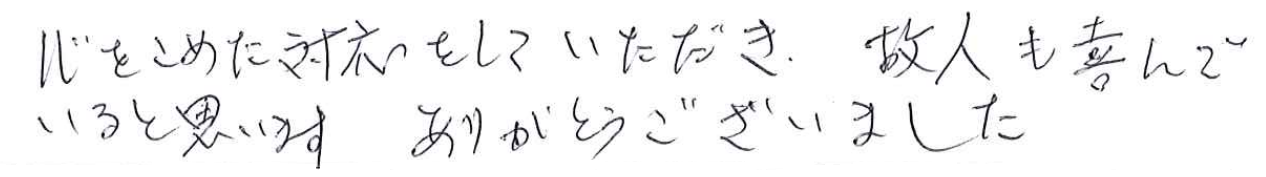 心をこめた対応をしていただき、故人も喜んで
いると思います ありがとうございました